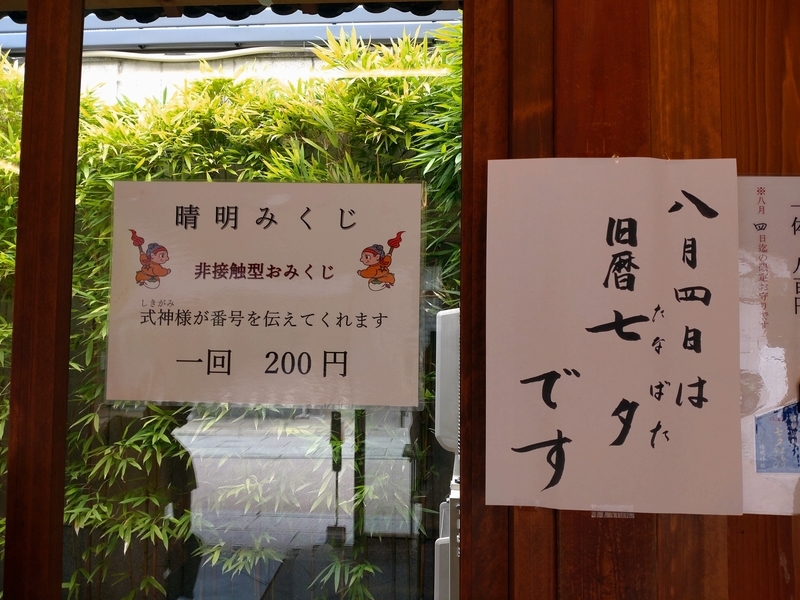 晴明みくじ
非接触型おみくじ
しきがみ
式神様が番号を伝えてくれます
一回 200円
八月四日は
旧暦七夕
たなばた
です
※八月四日迄の限定お守りです。
一体 八百円